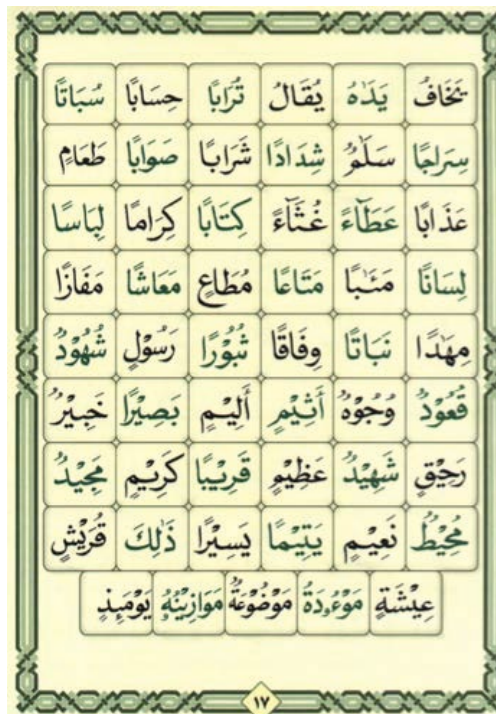 يَخَافُ يَدٰهُ يُقَالُ تُرَابًا حِسَابًا سُبَاتًا
سِرَاجًا سَلٰمٌ شِدَادًا شَرَابًا صَوَابًا طَعَامٍ
عَذَابًا عَطَآءً غُثَآءً كِتَابًا كِرَامًا لِبَاسًا
لِسَانًا مَـَٔابًا مَتَاعًا مُطَاعٍ مَعَاشًا مَفَازًا
مِهٰدًا نَبَاتًا وِفَاقًا ثُبُوْرًا رَسُوْلٍ شُهُوْدٌ
قُعُوْدٌ وُجُوْهٌ أَثِيْمٍ أَلِيْمٍ بَصِيْرًا خَبِيْرٌ
رَحِيْقٍ شَهِيْدٌ عَظِيْمٍ قَرِيْبًا كَرِيْمٍ مَجِيْدٌ
مُحِيْطٌ نَعِيْمٍ يَتِيْمًا يَسِيْرًا ذٰلِكَ قُرَيْشٍ
عِيْشَةٍ مَوْءُدَةُ مَوْضُوْعَةٌ مَوَازِيْنُهٗ يَوْمَئِذٍ
١٧